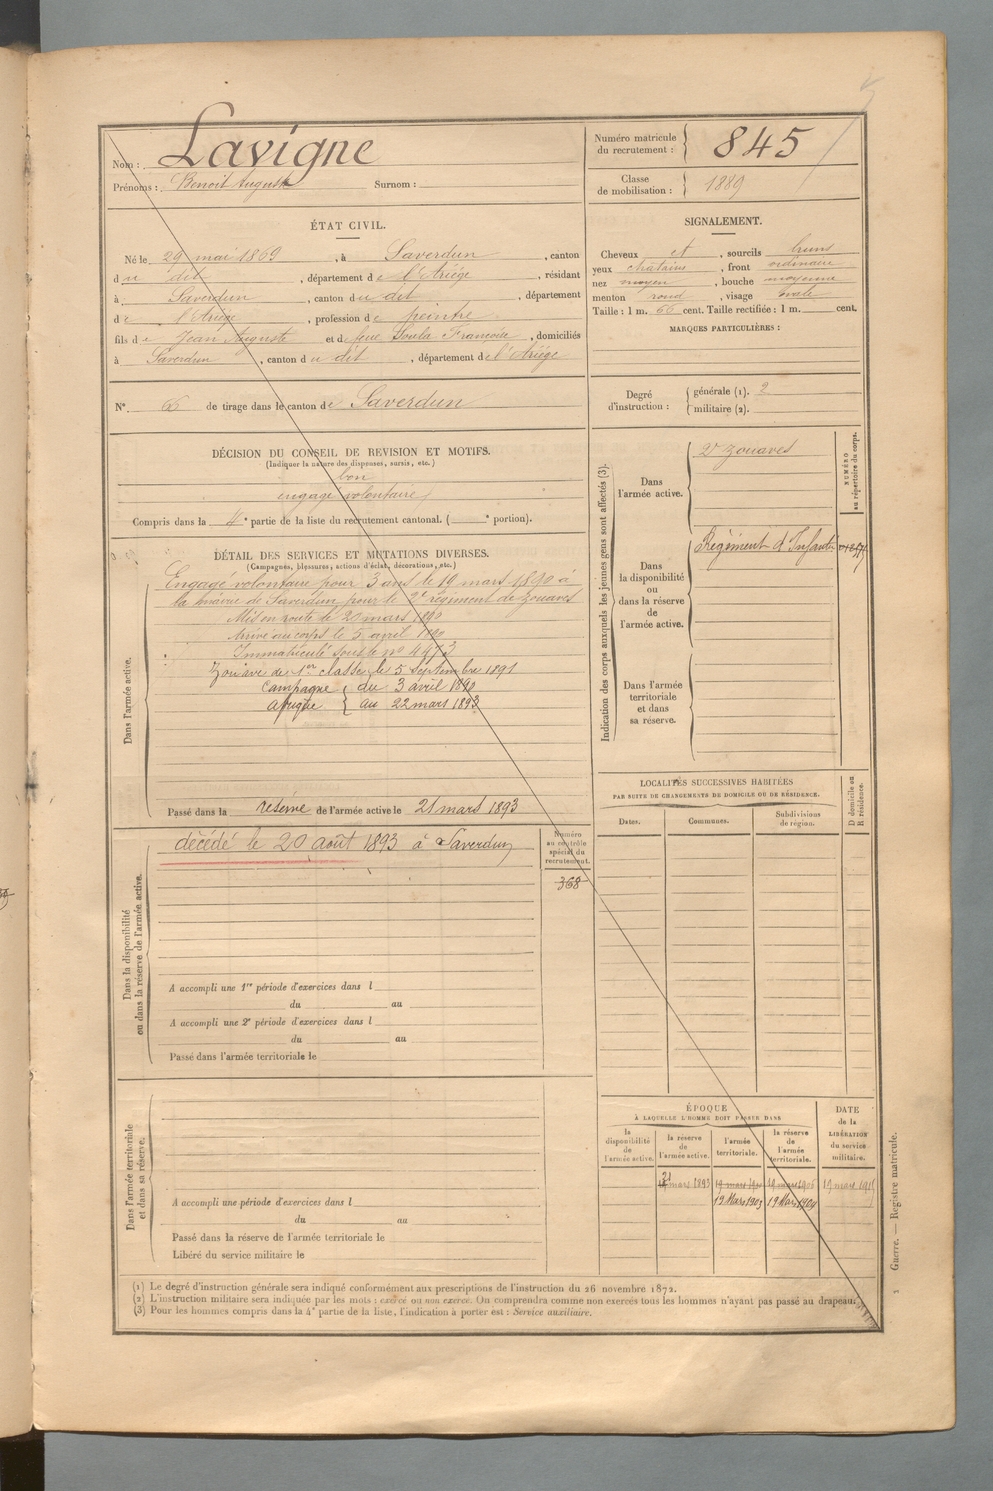 Nom : Lavigne
Prénoms : Benoit Auguste Surnom :
Numéro matricule du recrutement : 845
Classe de mobilisation : 1889
ÉTAT CIVIL.
Né le 29 mai 1869, à Saverdun, canton
du dit, département de l'Ariège, résidant
à Saverdun, canton du dit, département
de l'Ariège, profession de peintre
fils de Jean Auguste et de feue Soula Françoise, domiciliés
à Saverdun, canton du dit, département de l'Ariège
N° 66 de tirage dans le canton de Saverdun
SIGNALEMENT.
Cheveux et, sourcils bruns
yeux chatains, front ordinaire
nez moyen, bouche moyenne
menton rond, visage ovale
Taille : 1 m. 66 cent. Taille rectifiée : 1 m. cent.
MARQUES PARTICULIÈRES :
Degré d'instruction : générale (1). 2
militaire (2).
DÉCISION DU CONSEIL DE REVISION ET MOTIFS.
(Indiquer la nature des dispenses, sursis, etc.)
bon
engagé volontaire
Compris dans la 4e partie de la liste du recrutement cantonal. ( e portion).
DÉTAIL DES SERVICES ET MUTATIONS DIVERSES.
(Campagnes, blessures, actions d'éclat, décorations, etc.)
Dans l'armée active.
Engagé volontaire pour 3 ans le 19 mars 1890 à
la mairie de Saverdun pour le 2e régiment de Zouaves
Mis en route le 20 mars 1890
Arrivé au corps le 3 avril 1890
Immatriculé sous le no 4973
Zouave de 1er classe le 5 Septembre 1891
Campagne du 3 avril 1890
Afrique au 22 mars 1893
Passé dans la réserve de l'armée active le 21 mars 1893
Dans la disponibilité ou dans la réserve de l'armée active.
décédé le 20 août 1893 à Saverdun
Numéro au contrôle spécial du recrutement.
368
A accompli une 1re période d'exercices dans l
du au
A accompli une 2e période d'exercices dans l
du au
Passé dans l'armée territoriale le
Dans l'armée territoriale et dans sa réserve.
A accompli une période d'exercices dans l
du au
Passé dans la réserve de l'armée territoriale le
Libéré du service militaire le
Indication des corps auxquels les jeunes gens sont affectés (3).
NUMÉRO au répertoire du corps.
Dans l'armée active.
2e Zouaves
Dans la disponibilité ou dans la réserve de l'armée active.
Régiment d'Infant.
Dans l'armée territoriale et dans sa réserve.
LOCALITÉS SUCCESSIVES HABITÉES
PAR SUITE DE CHANGEMENTS DE DOMICILE OU DE RÉSIDENCE.
Dates. Communes. Subdivisions de région. D domicile ou R résidence.
ÉPOQUE
À LAQUELLE L'HOMME DOIT PASSER DANS
la disponibilité de l'armée active. la réserve de l'armée active. l'armée territoriale. la réserve de l'armée territoriale.
DATE de la LIBÉRATION du service militaire.
mars 1893 19 mars 1900 19 mars 1906 19 mars 1915
19 Mars 1903 19 Mars 1909
(1) Le degré d'instruction générale sera indiqué conformément aux prescriptions de l'instruction du 26 novembre 1872.
(2) L'instruction militaire sera indiquée par les mots : exercé ou non exercé. On comprendra comme non exercés tous les hommes n'ayant pas passé au drapeau.
(3) Pour les hommes compris dans la 4e partie de la liste, l'indication à porter est : Service auxiliaire.
Guerre. — Registre matricule.